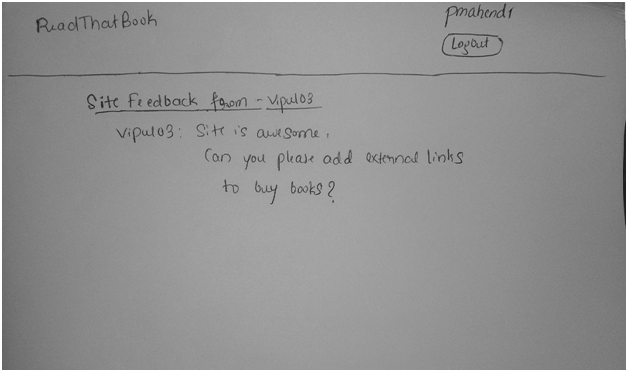 ReadThatBook
pmahend1
Logout
Site Feedback from - vipul03
vipul03: Site is awesome.
Can you please add external links
to buy books?